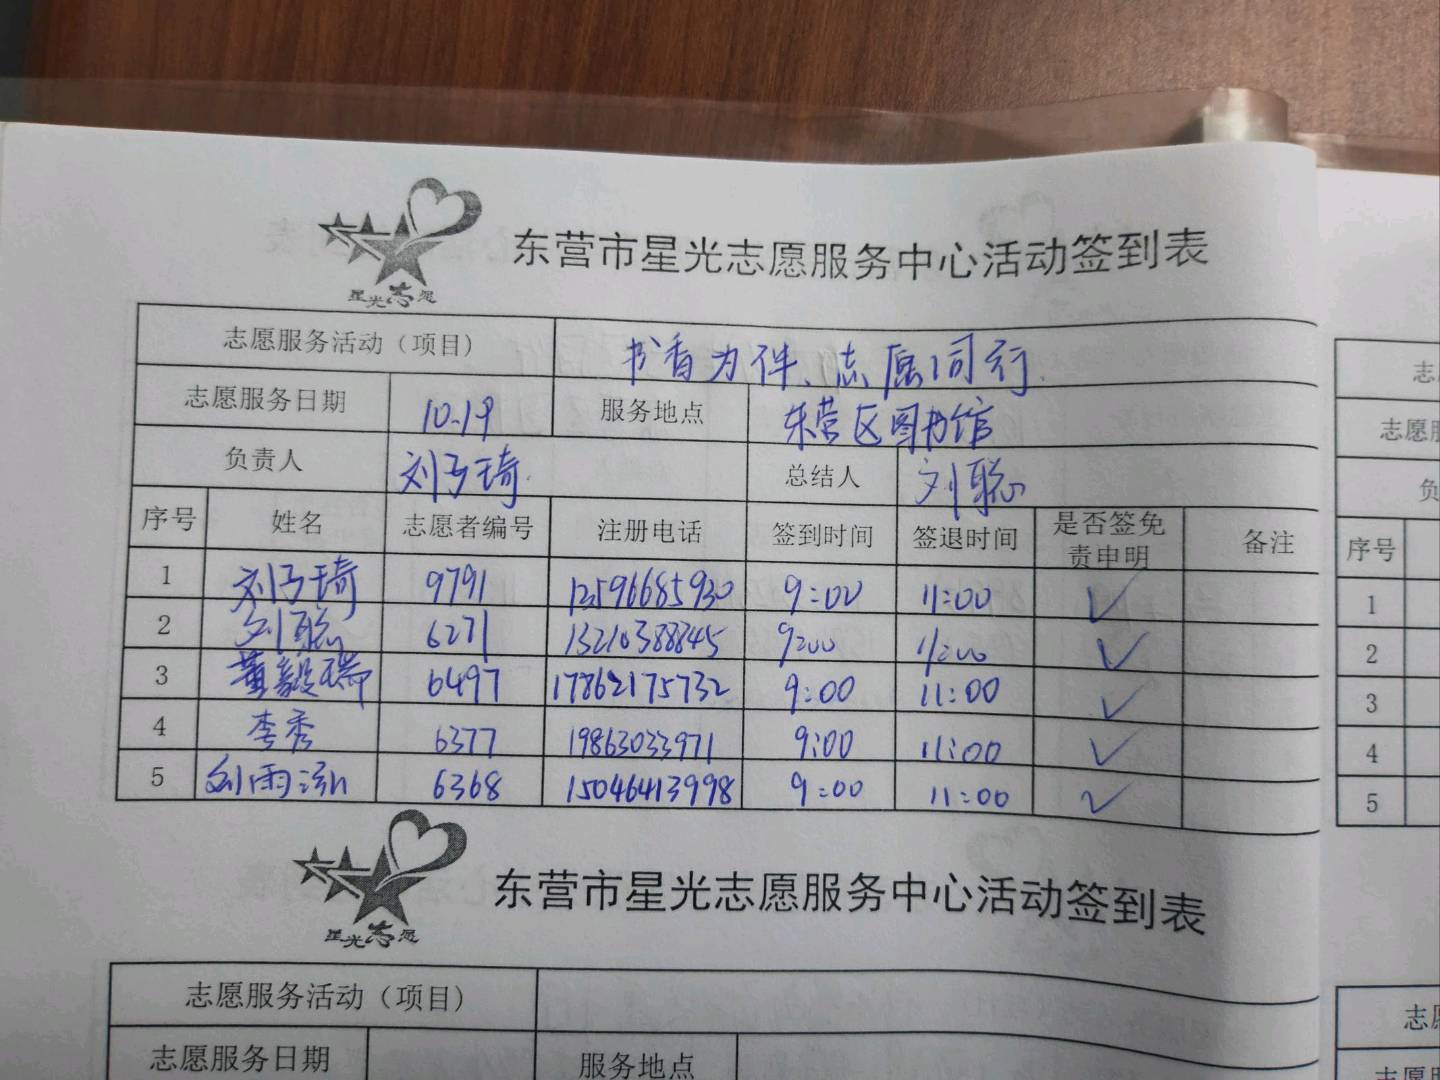 星光志愿
东营市星光志愿服务中心活动签到表
志愿服务活动（项目） 书香为伴、志愿同行.
志愿服务日期 10.19 服务地点 东营区图书馆
负责人 刘子琦. 总结人 刘聪
序号 姓名 志愿者编号 注册电话 签到时间 签退时间 是否签免责申明 备注
1 刘子琦 9791 9:00 11:00 ✓
2 刘聪 6271 13210388845 9:00 11:00 ✓
3 董毅瑞 6497 17862175732 9:00 11:00 ✓
4 李秀 6377 19863033971 9:00 11:00 ✓
5 刘雨泓 6368 15046413998 9:00 11:00 ✓
星光志愿
东营市星光志愿服务中心活动签到表
志愿服务活动（项目）
志愿服务日期 服务地点
志
志愿服
负
序号
1
2
3
4
5
志愿
志愿服